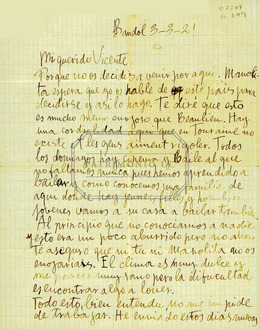 Bandól 3-3-21
Mi querido Vicente.
Porque no os decidis a venir por aqui. Manoli-
ta espera que yo os hable de este pais para
decidirse y asi lo hago. Te diré que esto
es mucho menos enojoso que Beaulieu. Hay
una cordialidad aqui que en Touraine no
existe les gens aiment rigoler. Todos
los domingos hay cinema y Baile al que
no faltamos nunca pues hemos aprendido a
bailar como conocemos una familia de
aqui donde hay
jovenes vamos a su casa a bailar tambien
Al principio que no conociamos a nadie
y esto era un poco aburrido pero te
aseguro que ni tu ni Manolita no os
enojariais. El clima es muy dulce y
muy sano pero la dificultad
es encontrar algo a louer.
Todo esto, bien entendu no me impide
de trabajar. He enviado estos dias nueve